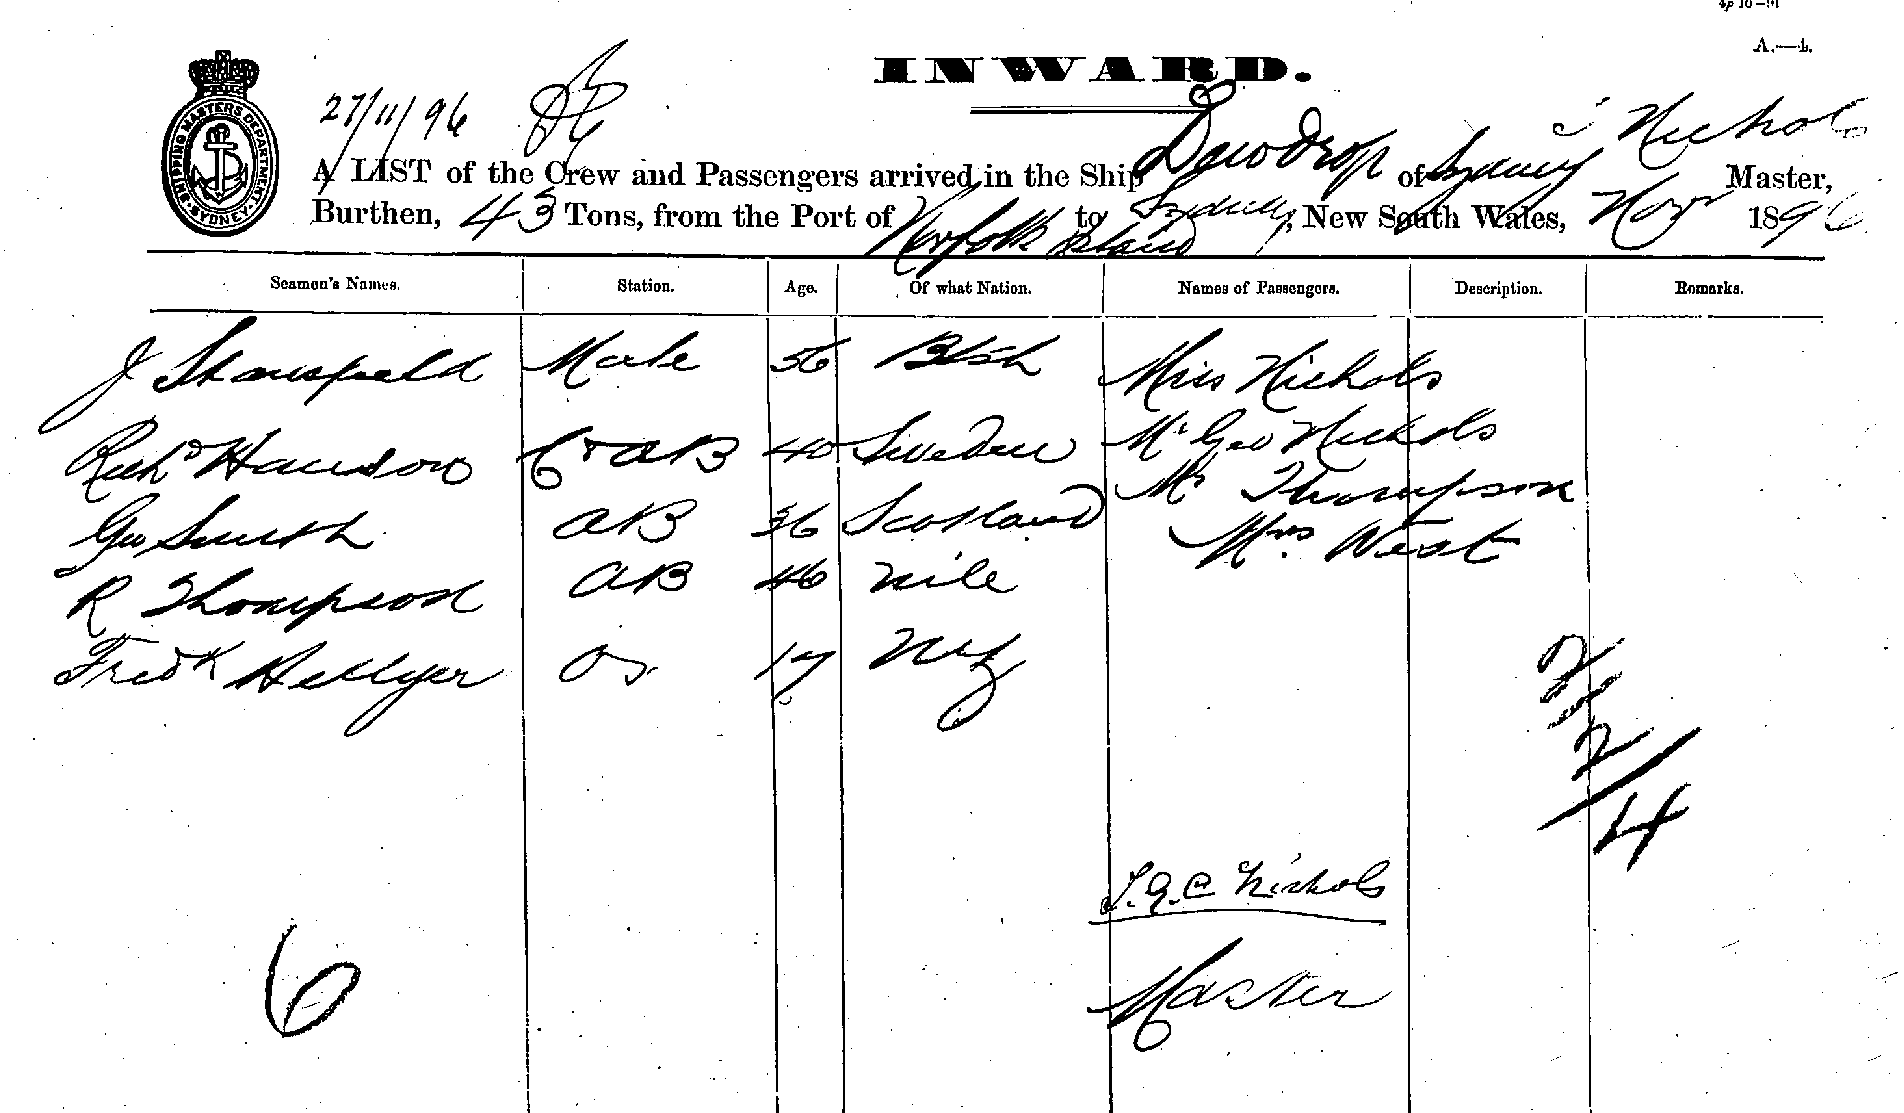 A.—4.
INWARD.
27/11/96
A LIST of the Crew and Passengers arrived in the Ship Dewdrop of Sydney Nichols Master,
Burthen, 43 Tons, from the Port of Norfolk Island to Sydney, New South Wales, Novr 1896
SHIPPING MASTERS DEPARTMENT. SYDNEY
Seamen's Names. Station. Age. Of what Nation. Names of Passengers. Description. Remarks.
J Stansfield Mate 56 Btsh Miss Nichols
Richd Hanson Cr AB 40 Sweden Mr Geo Nichols
Geo Smith AB 36 Scotland Mr Thompson
Mrs West
R Thompson AB 46 Nile
Fredk Hellyer Os 17 NZ
2
2
/4
Nichols
6
Master